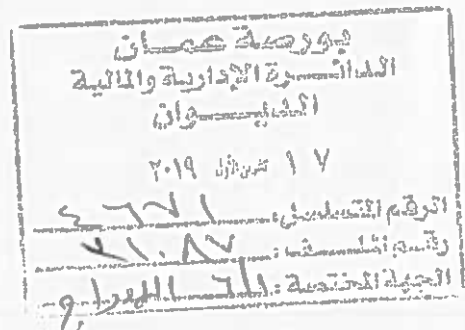 بورصة عمان
الدائرة الإدارية والمالية
الديوان
١٧ تشرين الأول ٢٠١٩
الرقم المتسلسل: ٤٦٧١
رقم الملف: ٢١٠٨٧
الجهة المختصة: